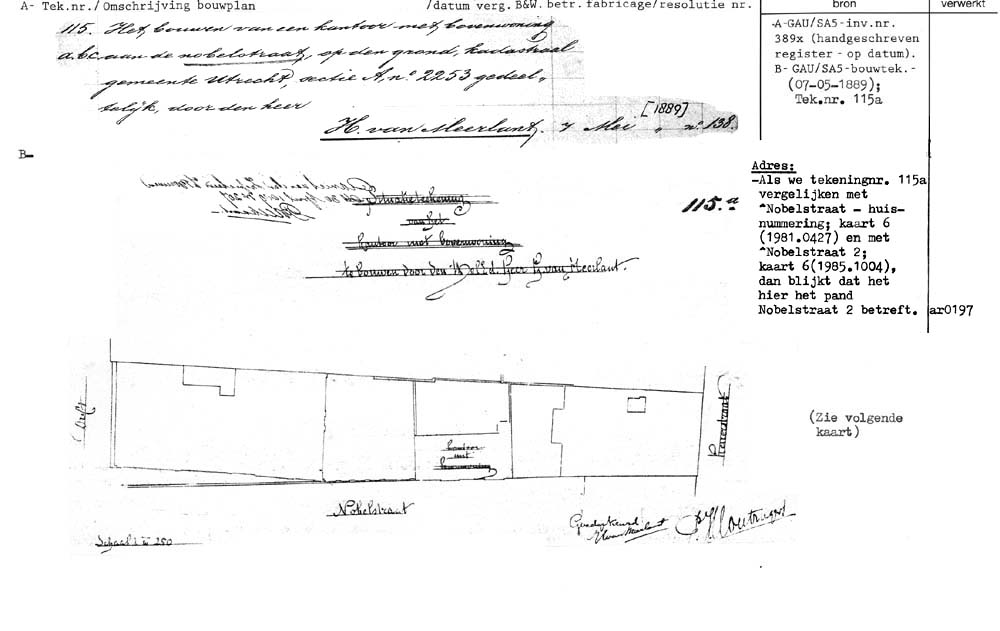 A- Tek.nr./Omschrijving bouwplan /datum verg. B&W.betr.fabricage/resolutie nr. bron verwerkt
115. Het bouwen van een kantoor met bovenwoning
a.b.c. aan de nobelstraat, op den grond, kadastraal
gemeente Utrecht, sectie A, no 2253 gedeel„
telijk, door den heer
[1889]
H. van Meerlant. 7 Mei „ no. 138.
-A-GAU/SA5-inv.nr.
389x (handgeschreven
register - op datum).
B- GAU/SA5-bouwtek.-
(07-05-1889);
Tek.nr. 115a
B-
Situatieteekening
van het
kantoor met bovenwoning
te bouwen door den Heer H. van Meerlant.
115.a
Adres:
-Als we tekeningnr. 115a
vergelijken met
^Nobelstraat - huis-
nummering; kaart 6
(1981.0427) en met
^Nobelstraat 2;
kaart 6(1985.1004),
dan blijkt dat het
hier het pand
Nobelstraat 2 betreft. ar0197
Drift
kantoor
met
bovenwoning
Nobelstraat
(Zie volgende
kaart)
Goedgekeurd
H van Meerlant
Schaal 1 à 250